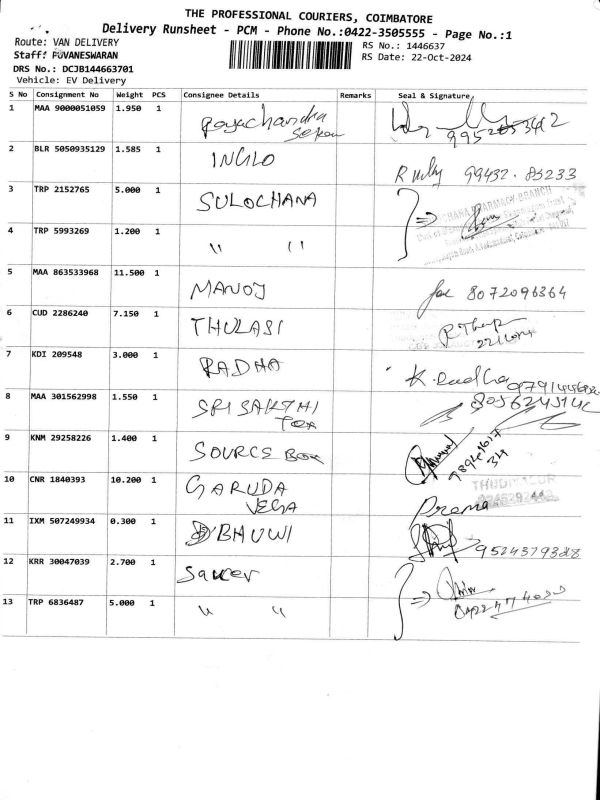 THE PROFESSIONAL COURIERS, COIMBATORE
Delivery Runsheet - PCM - Phone No.:0422-3505555 - Page No.:1
Route: VAN DELIVERY
Staff: PUVANESWARAN
DRS No.: DCJB144663701
Vehicle: EV Delivery
RS No.: 1446637
RS Date: 22-Oct-2024
S No Consignment No Weight PCS Consignee Details Remarks Seal & Signature
1 MAA 9000051059 1.950 1
2 BLR 5050935129 1.585 1 INGLO 99432.83233
3 TRP 2152765 5.000 1 SULOCHANA
4 TRP 5993269 1.200 1 " "
5 MAA 863533968 11.500 1 MANOJ for 8072096364
6 CUD 2286240 7.150 1 THULASI
7 KDI 209548 3.000 1 RADHA K. Radha
8 MAA 301562998 1.550 1 SRI SAKTHI
TEX
9 KNM 29258226 1.400 1 SOURCE BOX
10 CNR 1840393 10.200 1 GARUDA
VEGA Prema
11 IXM 507249934 0.300 1 BHUWI
12 KRR 30047039 2.700 1
13 TRP 6836487 5.000 1 " "